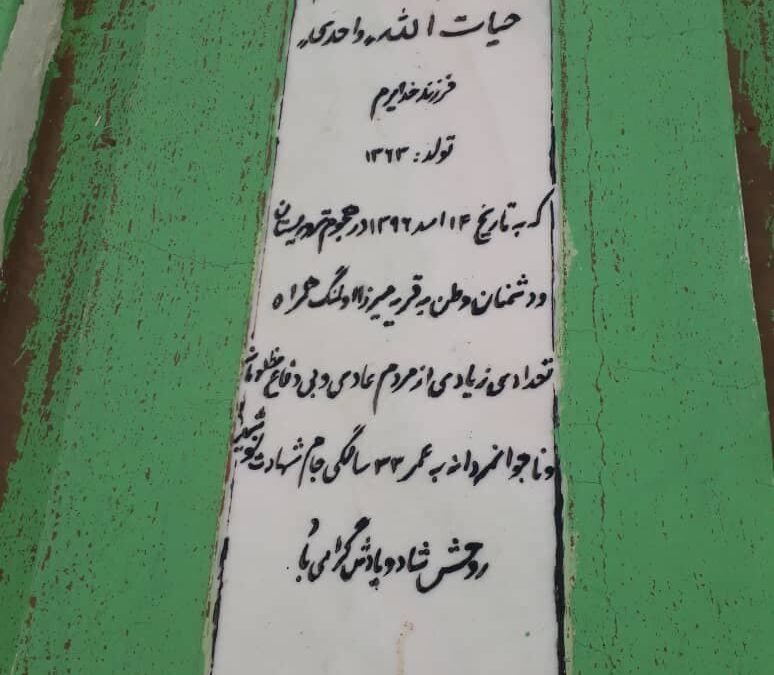 حیات الله واحدی
فرزند خدایرم
تولد: ۱۳۶۳
که به تاریخ ۱۴ اسد ۱۳۹۶ در هجوم تروریستان
و دشمنان وطن به قریه میرزا اولنگ همراه
تعدادی زیادی از مردم عادی و بی دفاع مظلومانه
و ناجوانمردانه به عمر ۳۳ سالگی جام شهادت نوشید
روحش شاد و یادش گرامی باد